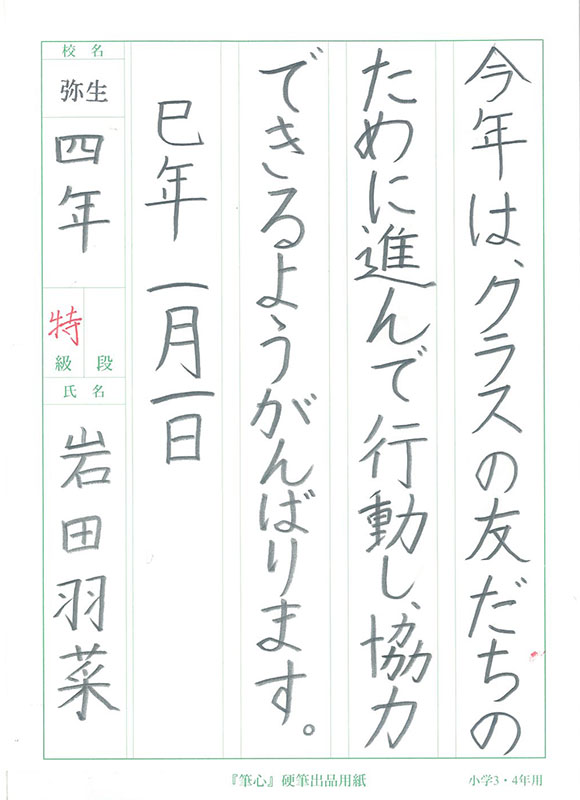 今年は、クラスの友だちの
ために進んで行動し、協力
できるようがんばります。
巳年 一月一日
校名
弥生
四年
特
級 段
氏名
岩田羽菜
『筆心』硬筆出品用紙
小学3・4年用